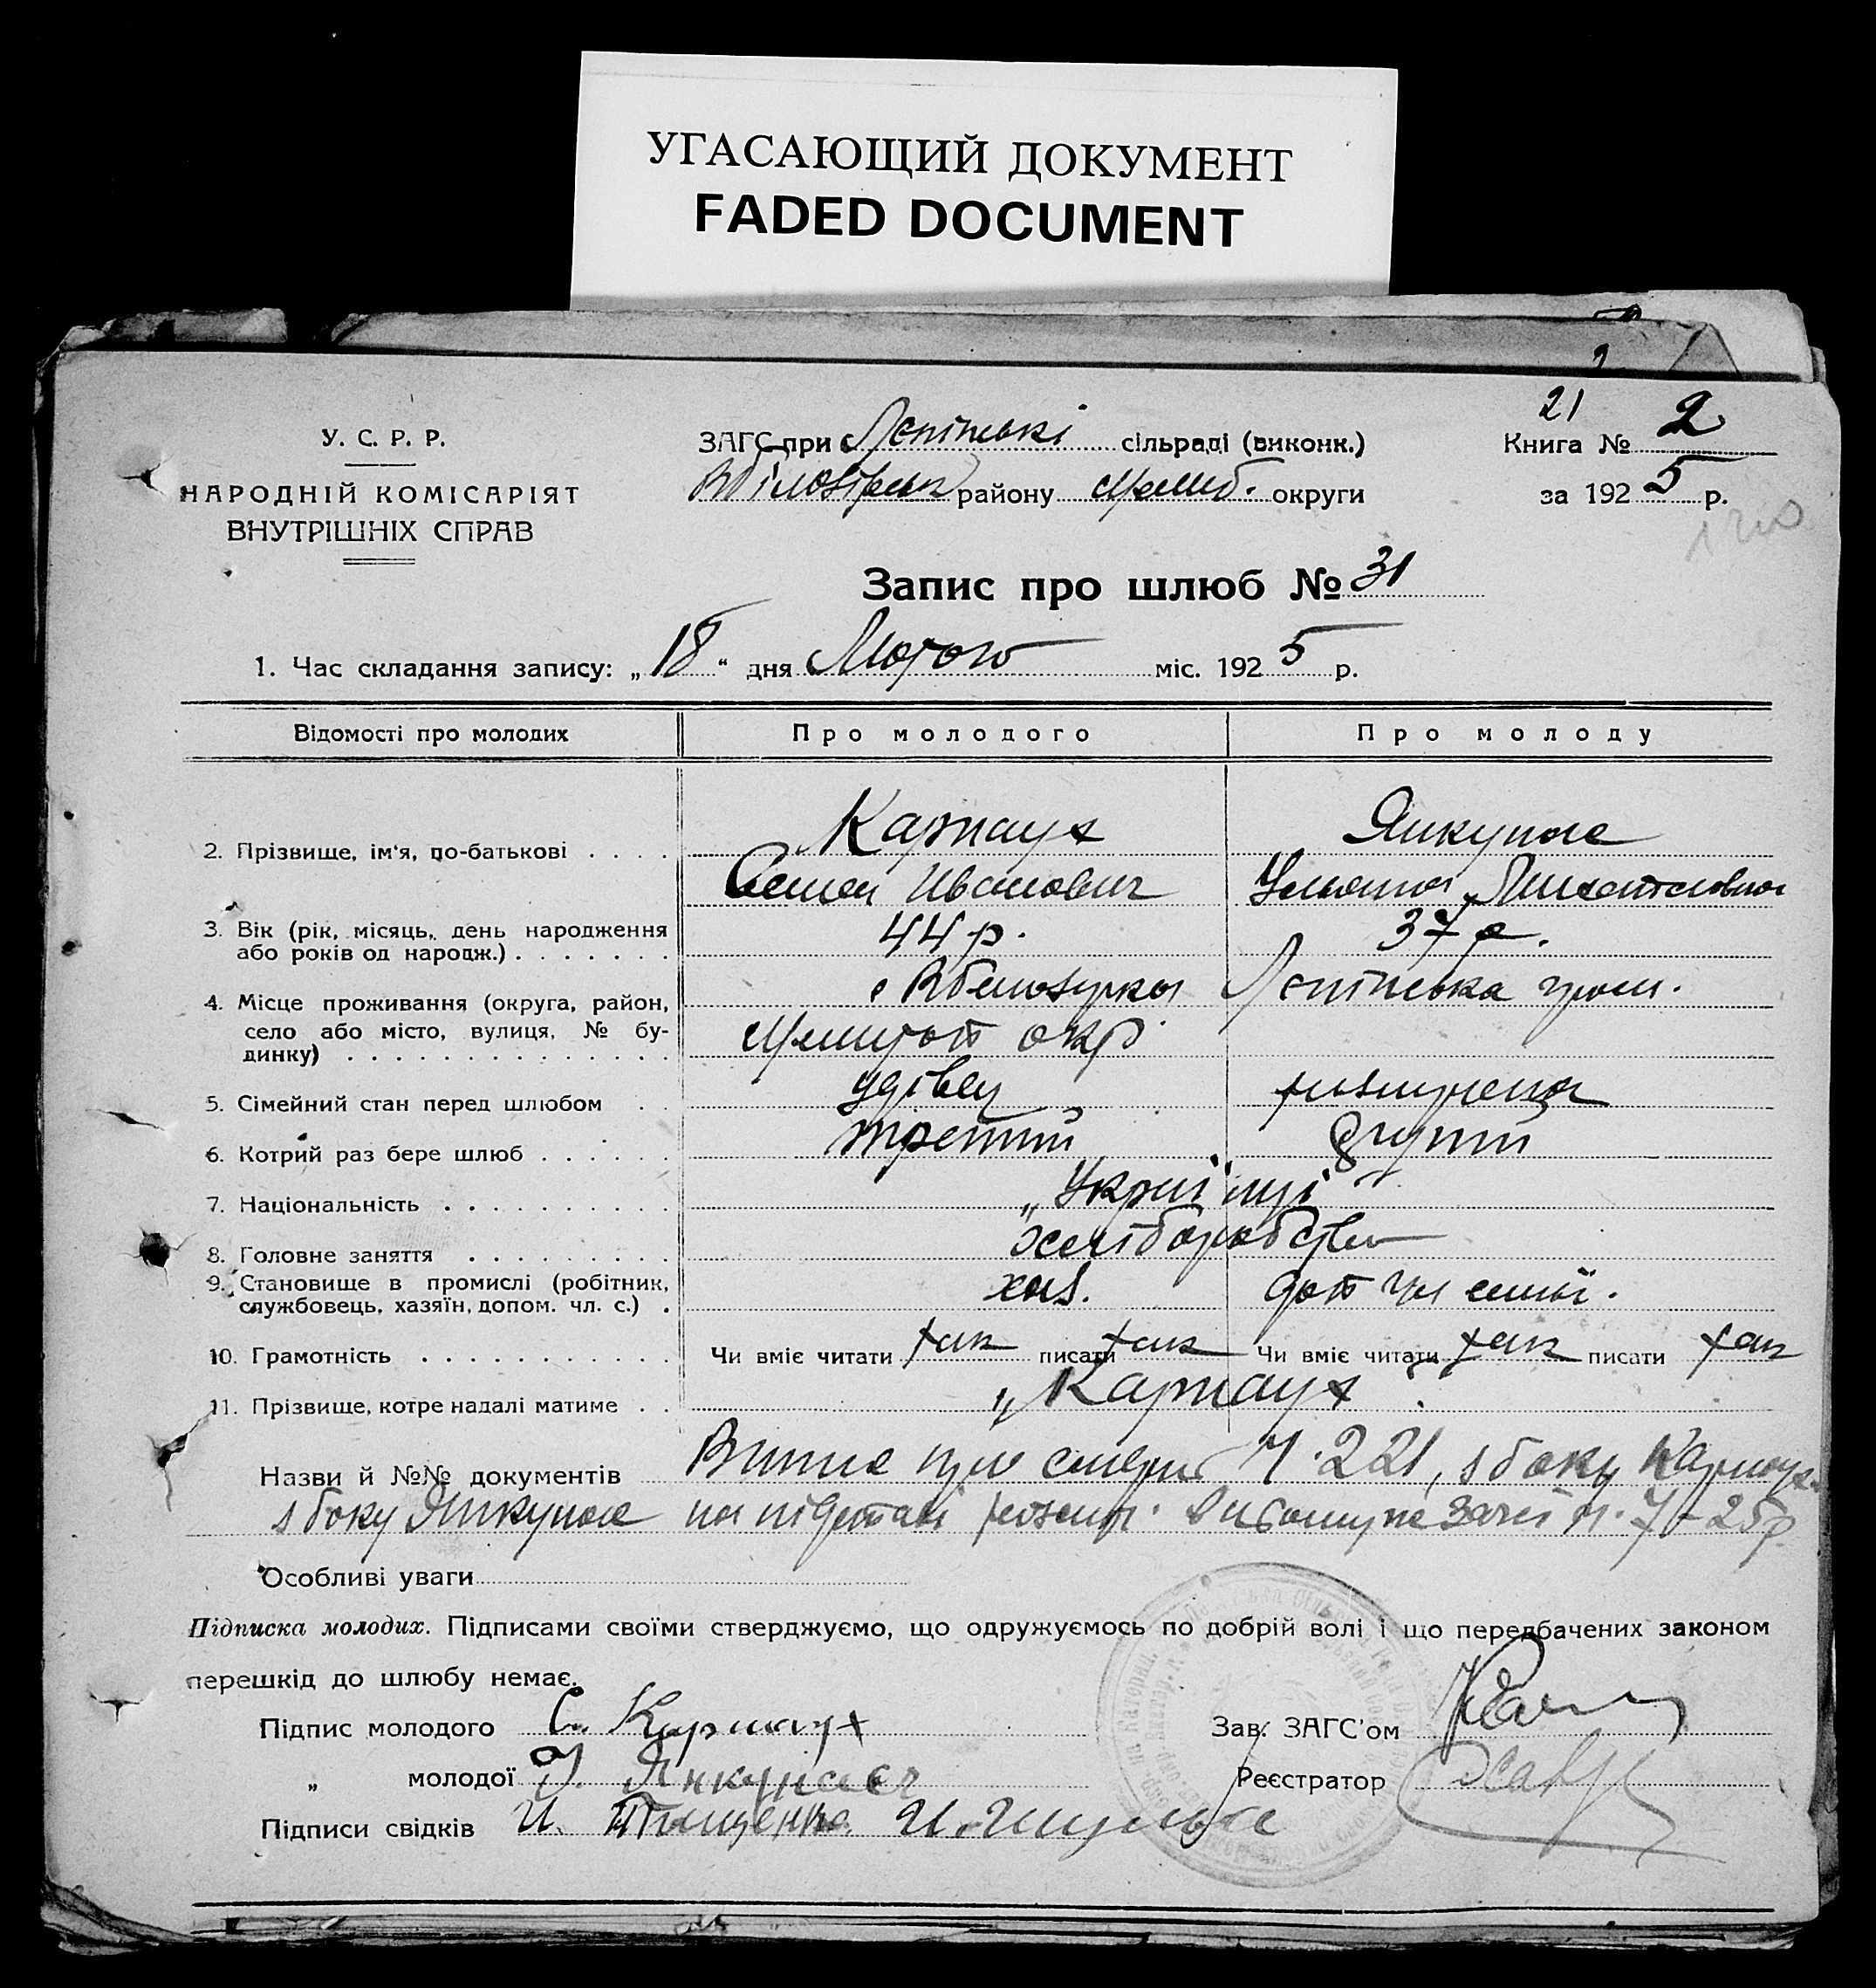 УГАСАЮЩИЙ ДОКУМЕНТ
FADED DOCUMENT
21
У. С. Р. Р.
НАРОДНІЙ КОМІСАРІЯТ
ВНУТРІШНІХ СПРАВ
ЗАГС при сільраді (виконк.)
району округи
Книга № 2
за 1925 р.
Запис про шлюб № 31
1. Час складання запису: „18“ дня Лютого міс. 1925 р.
Відомості про молодих Про молодого Про молоду
2. Прізвище, ім'я, по-батькові . . . . Карнаух
Семен Иванович Ульяна
3. Вік (рік, місяць, день народження
або років од народж.) . . . . . . . 44 р. 37 р.
4. Місце проживання (округа, район,
село або місто, вулиця, № бу-
динку) . . . . . . . . . . . . . . окр.
5. Сімейний стан перед шлюбом . . удівец
6. Котрий раз бере шлюб . . . . . . третий другий
7. Національність . . . . . . . . . . „Українці“
8. Головне заняття . . . . . . . . хліборобство
9. Становище в промислі (робітник,
службовець, хазяїн, допом. чл. с.) . хаз. доп чл сем'ї.
10. Грамотність . . . . . . . . . . . Чи вміє читати так писати так Чи вміє читати так писати так
11. Прізвище, котре надалі матиме . . „Карнаух“
Назви й №№ документів Витяг про смерть Ч. 221, з боку Карнаух
з боку на підставі
Особливі уваги
Підписка молодих. Підписами своїми стверджуємо, що одружуємось по добрій волі і що передбачених законом
перешкід до шлюбу немає.
Підпис молодого С. Карнаух
Зав. ЗАГС'ом
„ молодої
Реєстратор
Підписи свідків И. Тищенко И.